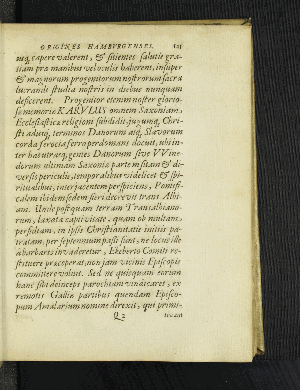 ORIGINES HAMBURGENSES. 121
capere valerent, & sitientes salutis gra-
tiam præ manibus vel oculis haberent, insuper
& magnorum progenitorum nostrorum sacra
lucrandi studia nostris in diebus nunquam
deficerent. Progenitor etenim noster glorio-
sæ memoriæ KARVLUS omnem Saxoniam,
Ecclesiasticæ religioni subdidit, jugumq; Chri-
sti adusq; terminos Danorum atq; Slavorum
corda ferocia ferro perdomans docuit, ubi in-
ter has utrasq; gentes Danorum sive VVine-
dorum ultimam Saxoniæ partem sitam & di-
versis periculis, temporalibus videlicet & spi-
ritualibus, interjacentem perspiciens, Pontifi-
calem ibidem sedem fieri decrevit trans Albi-
am. Unde postquam terram Transalbiano-
rum, laxata captivitate, quam ob multam
perfidiam, in ipsis Christianitatis initiis pa-
tratam, per septennium passi sunt, ne locus ille
à barbaris invaderetur, Ekeberto Comiti re-
stituere præceperat, non jam vicinis Episcopis
committere voluit. Sed ne quisquam eorum
hanc sibi deinceps parochiam vindicaret, ex
remotis Galliæ partibus quendam Episco-
pum Amalarium nomine direxit, qui primi-
Q 2